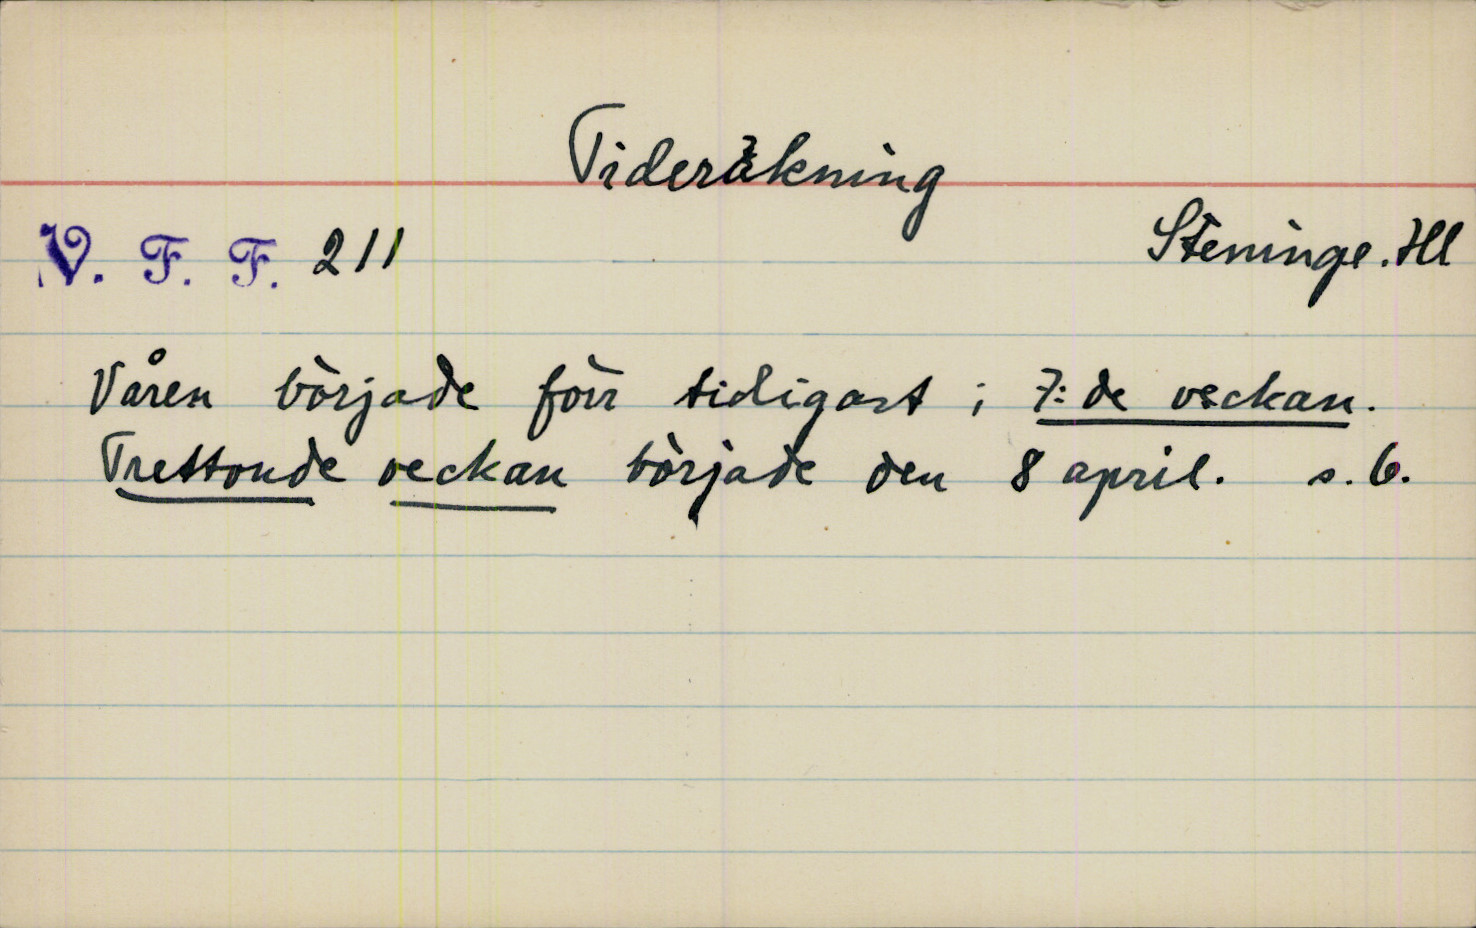 Tideräkning
V. F. F. 211
Steninge. Hl
Våren började förr tidigast i 7:de veckan.
Trettonde veckan började den 8 april. s. 6.